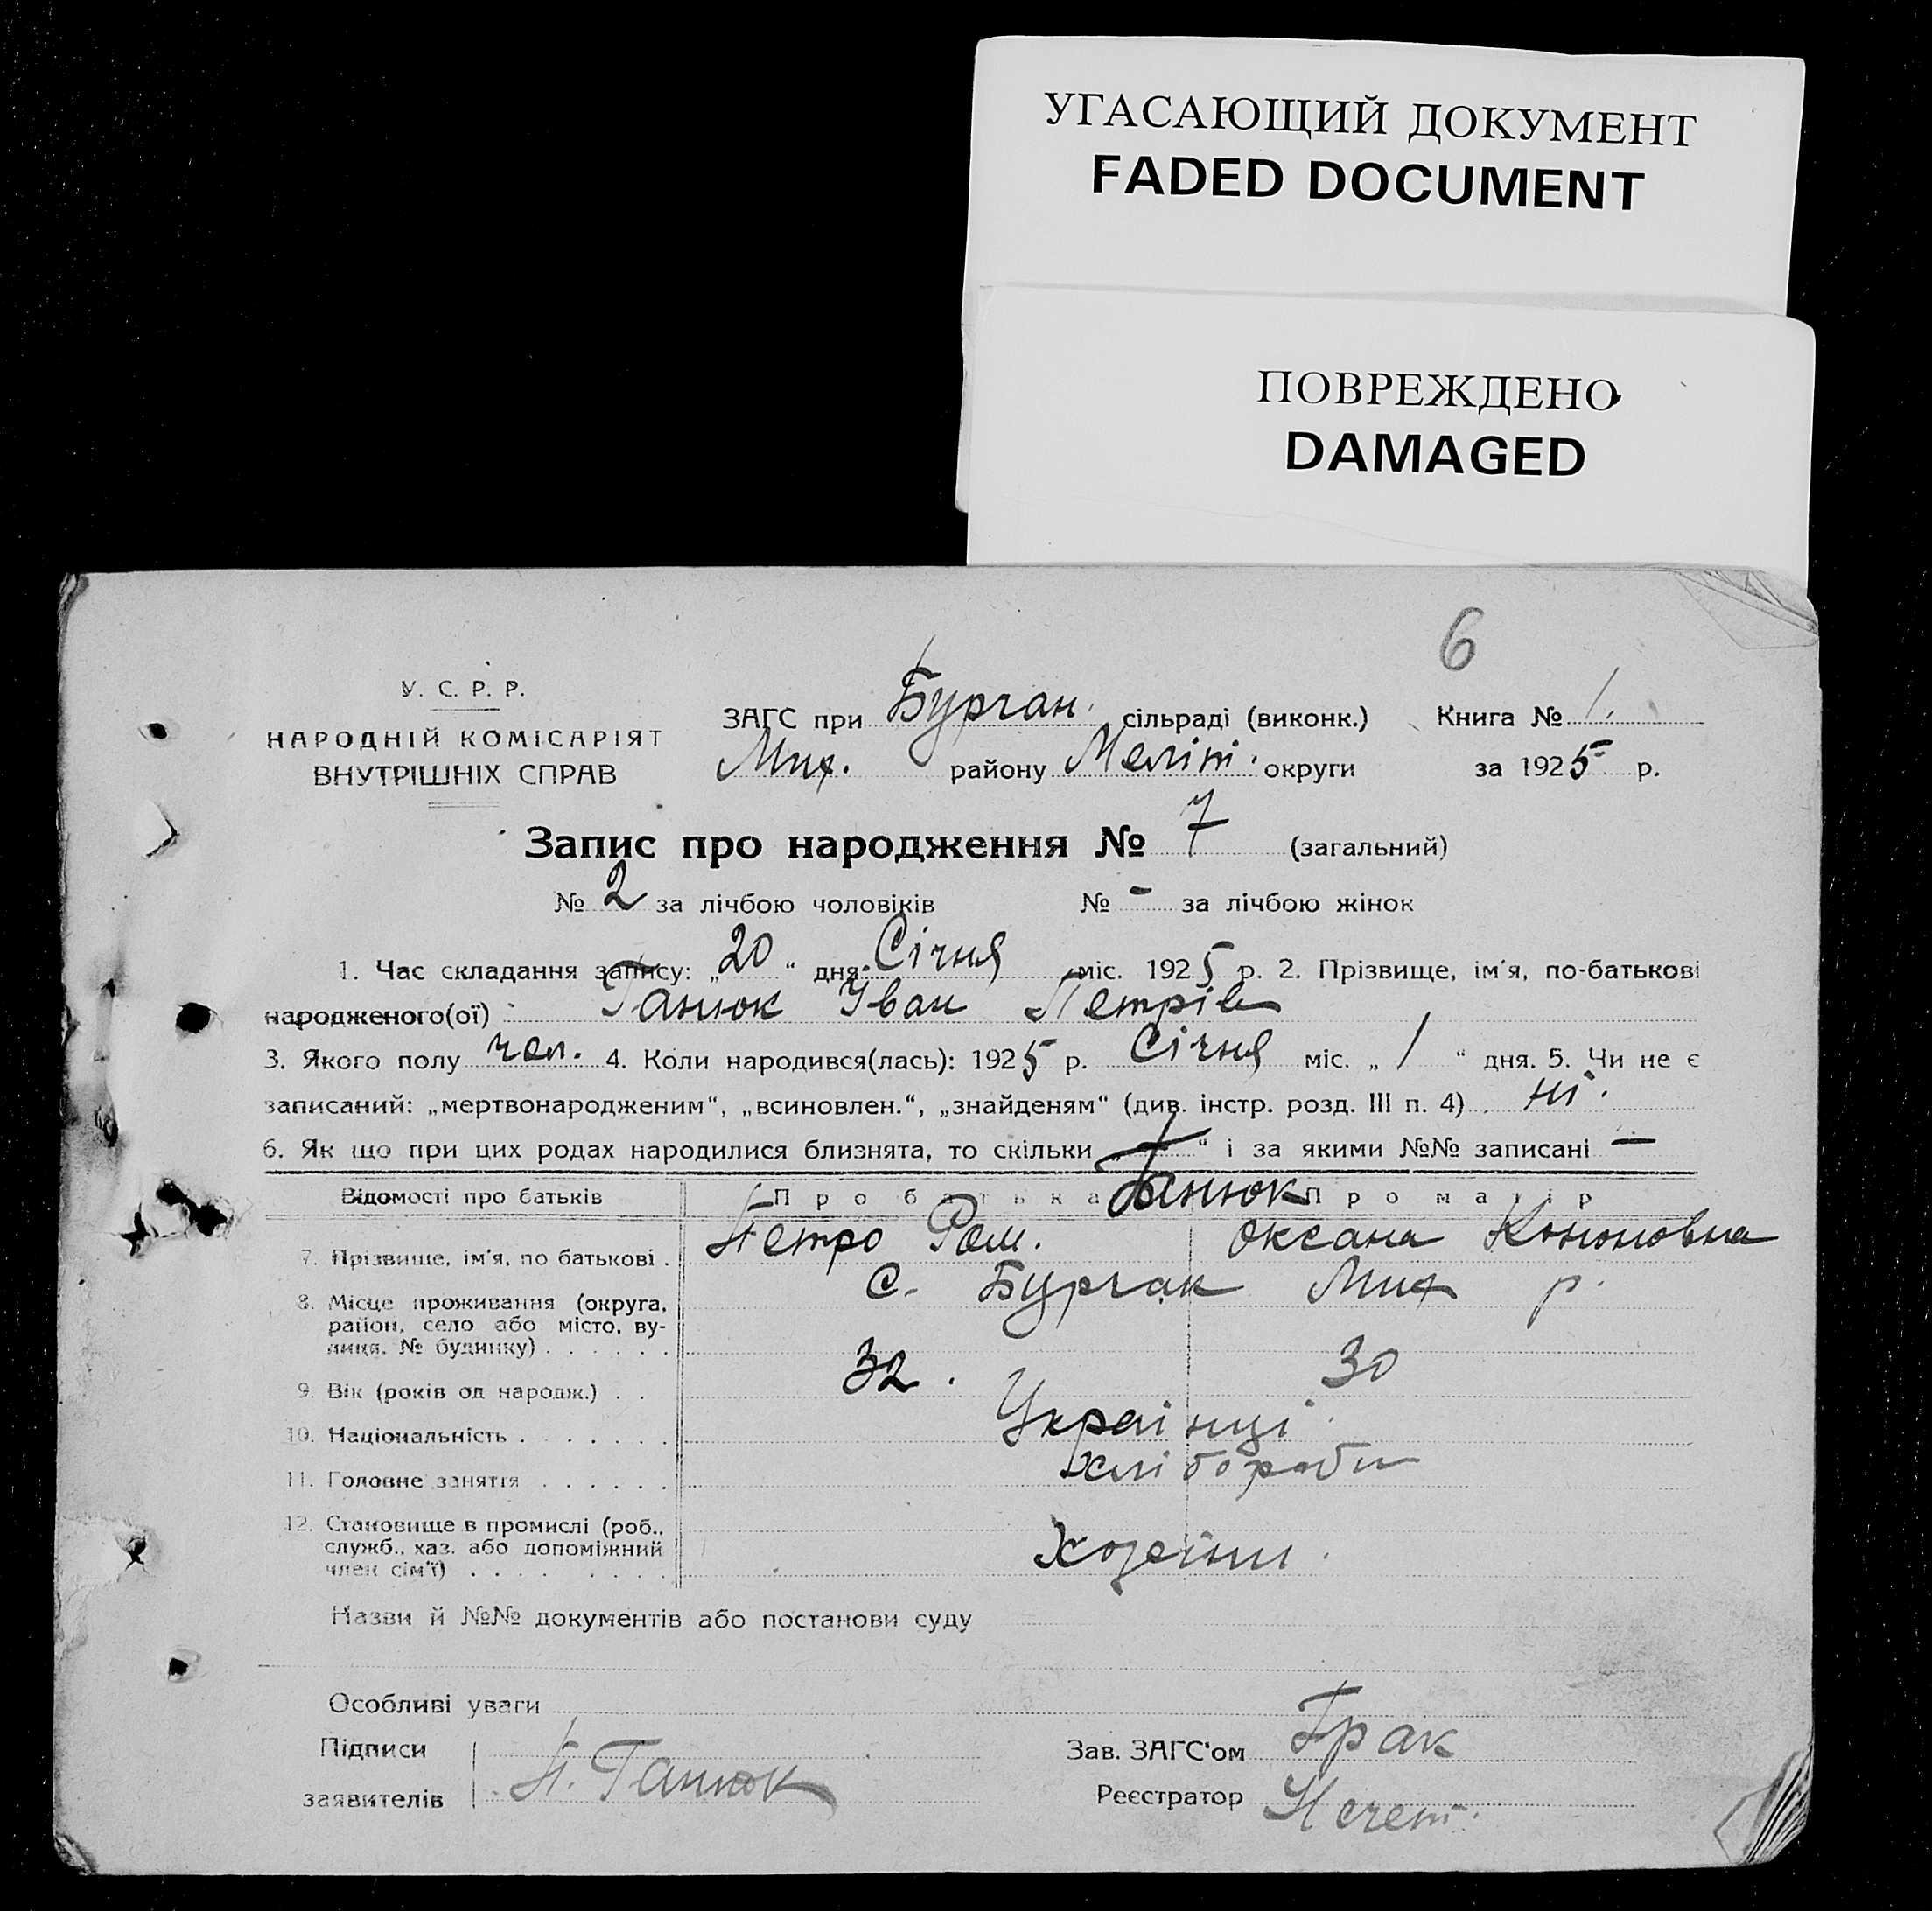 УГАСАЮЩИЙ ДОКУМЕНТ
FADED DOCUMENT
ПОВРЕЖДЕНО
DAMAGED
6
У. С. Р. Р.
НАРОДНІЙ КОМІСАРІЯТ
ВНУТРІШНІХ СПРАВ
ЗАГС при Бурчак. сільраді (виконк.) Книга № 1.
Мих. району Меліт. округи за 1925 р.
Запис про народження № 7 (загальний)
№ 2 за лічбою чоловіків № - за лічбою жінок
1. Час складання запису: „20“ дня Січня міс. 1925 р. 2. Прізвище, ім'я, по-батькові
народженого(ої) Ганюк Іван Петрів
3. Якого полу чол. 4. Коли народився(лась): 1925 р. Січня міс. „1“ дня. 5. Чи не є
записаний: „мертвонародженим“, „всиновлен.“, „знайденям“ (див. інстр. розд. III п. 4) ні.
6. Як що при цих родах народилися близнята, то скільки „—“ і за якими №№ записані —
Відомості про батьків Про батька Ганюк Про матір
7. Прізвище, ім'я, по батькові . Петро Ром. Оксана Кононовна
8. Місце проживання (округа, с. Бурчак Мих р.
район, село або місто, ву-
лиця, № будинку) . . . . . .
9. Вік (років од народж.) . . 32. 30
10. Національність . . . . . . . Українці
11. Головне заняття . . . . . . хлібороби
12. Становище в промислі (роб.,
служб., хаз. або допоміжний Хозяїни.
член сім'ї) . . . . . . . .
Назви й №№ документів або постанови суду
Особливі уваги
Підписи Зав. ЗАГС'ом Грак
заявителів П. Ганюк Реєстратор Нечет.